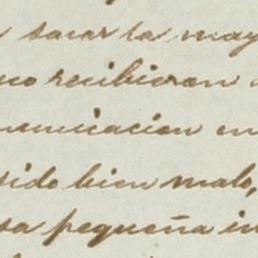 sacar la may
recibieran
municacion en
sido bien malo,
sa pequeña in